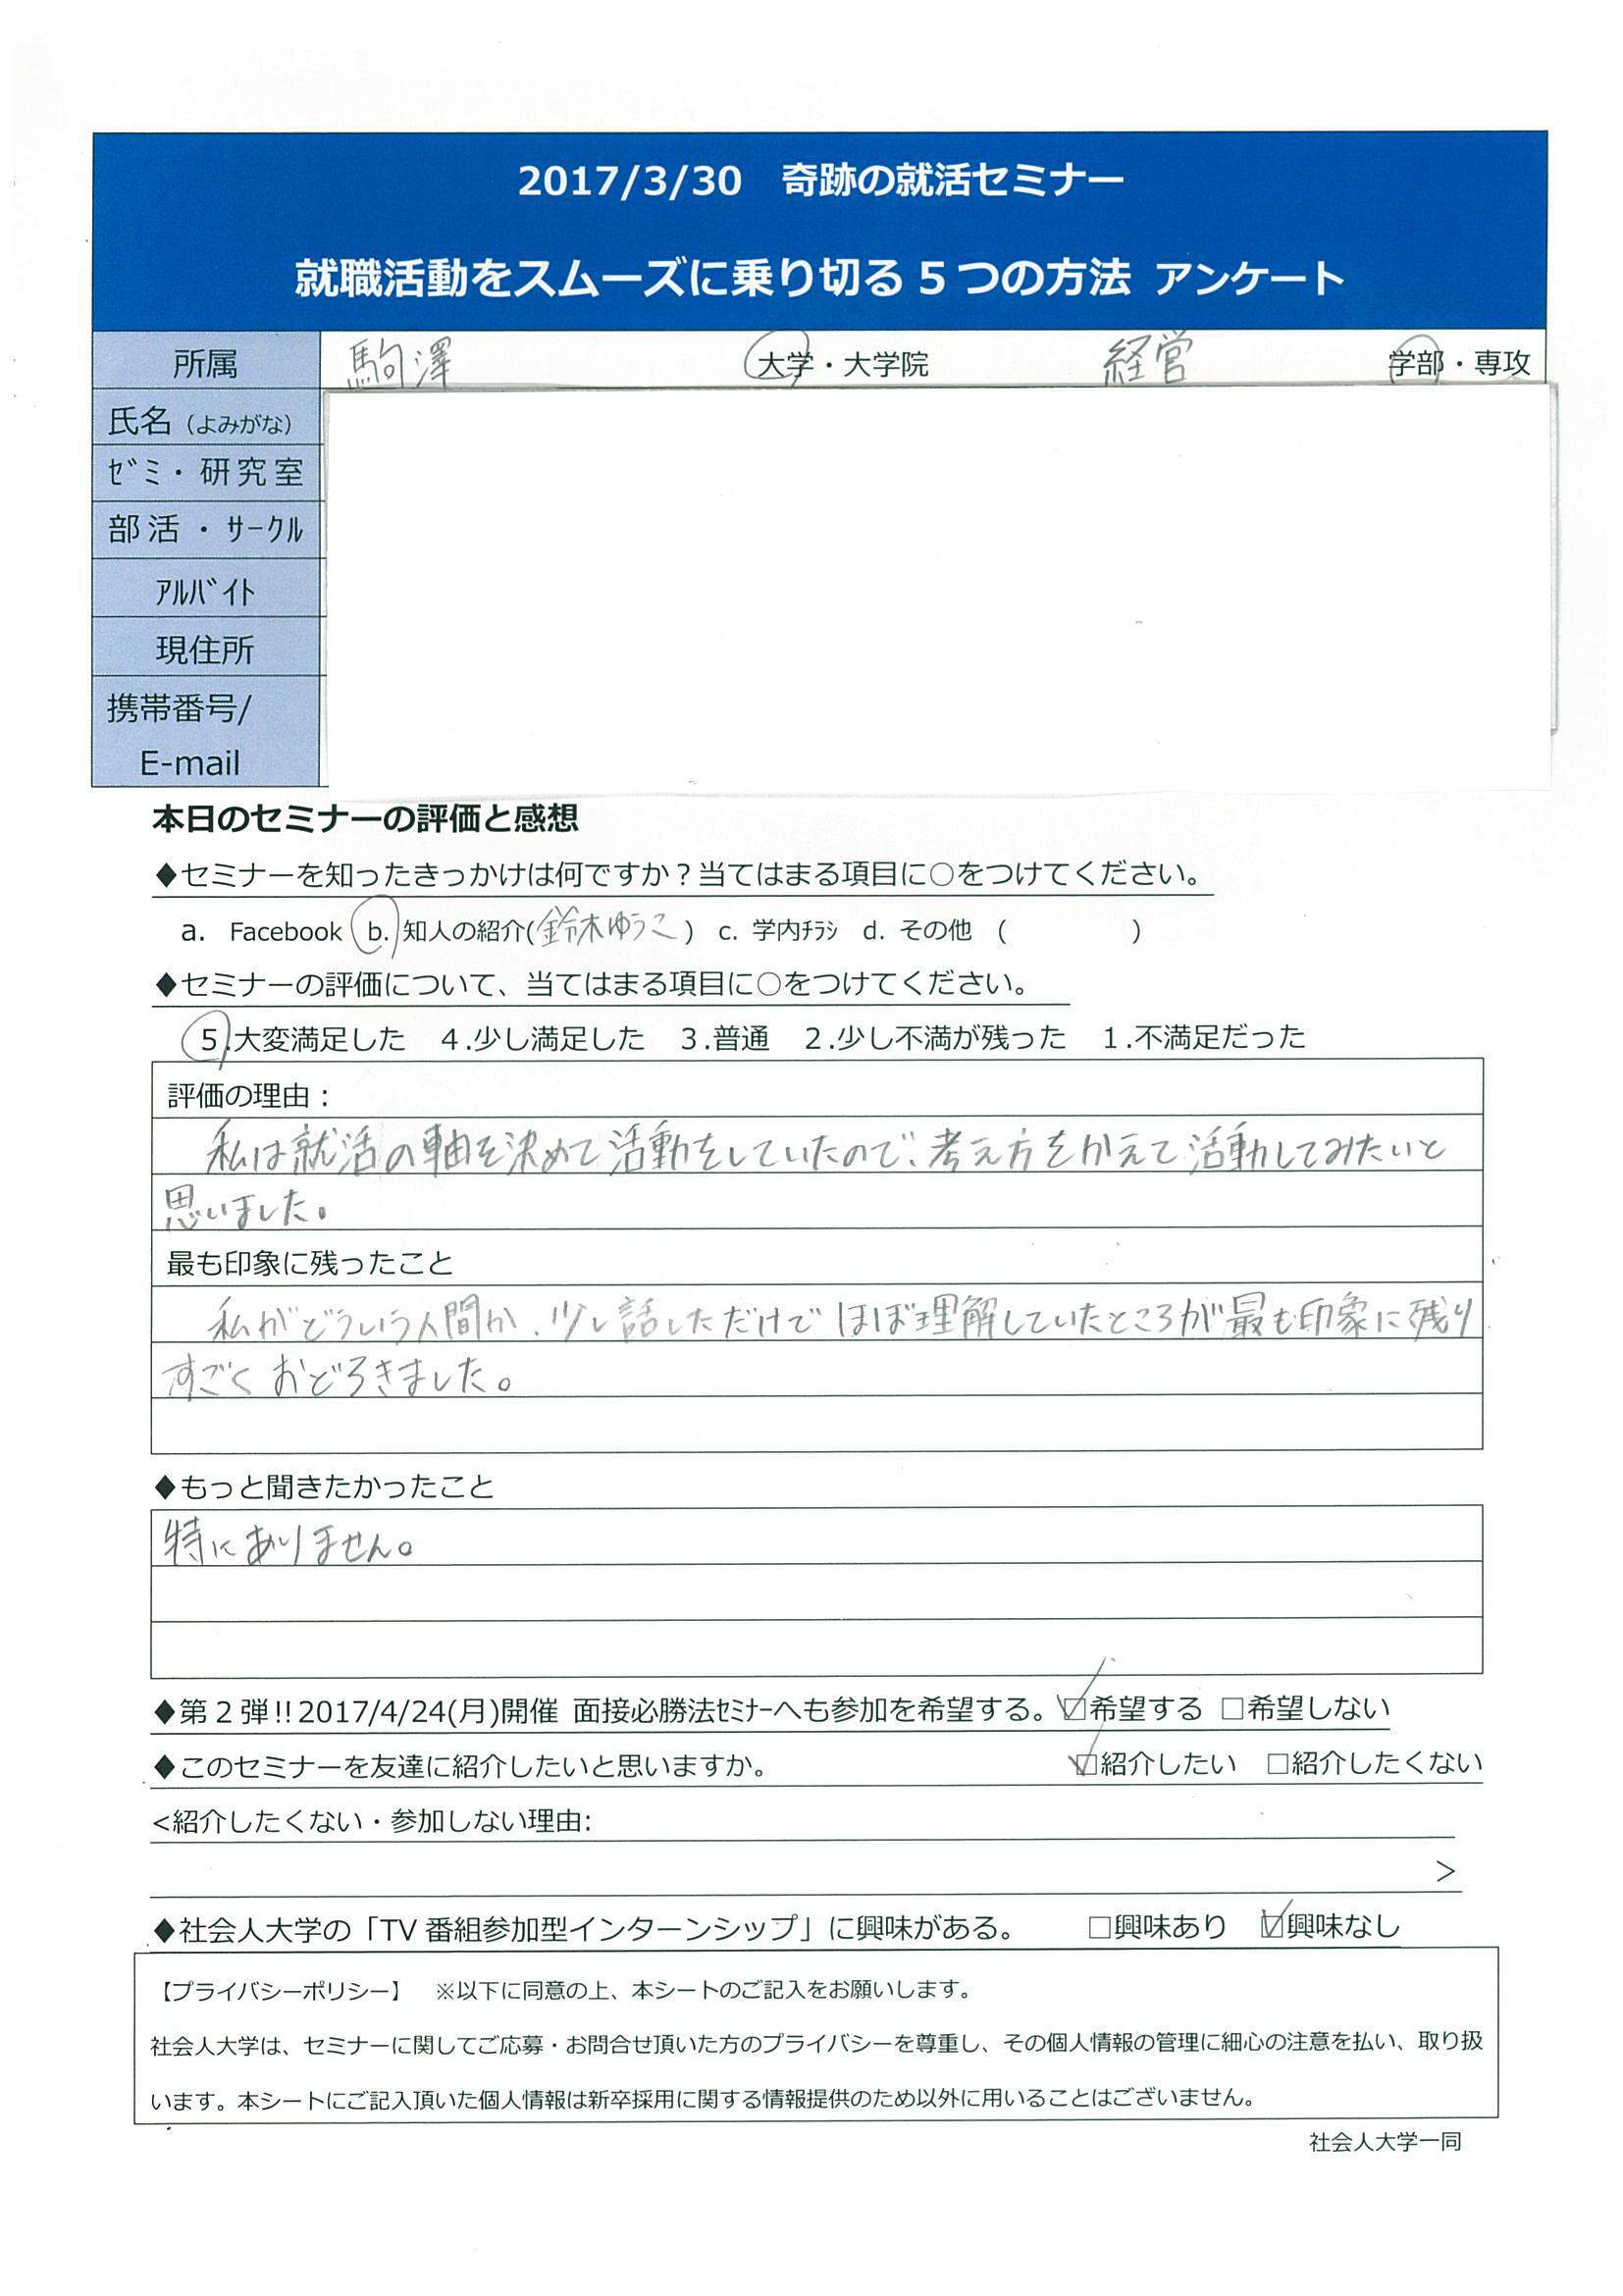 2017/3/30　奇跡の就活セミナー
就職活動をスムーズに乗り切る５つの方法 アンケート
所属 駒澤 大学・大学院 経営 学部・専攻
氏名（よみがな）
ｾﾞﾐ・研究室
部活・ｻｰｸﾙ
ｱﾙﾊﾞｲﾄ
現住所
携帯番号/
E-mail
本日のセミナーの評価と感想
◆セミナーを知ったきっかけは何ですか？当てはまる項目に○をつけてください。
a. Facebook b. 知人の紹介(鈴木ゆうこ) c. 学内ﾁﾗｼ d. その他 ( )
◆セミナーの評価について、当てはまる項目に○をつけてください。
５.大変満足した ４.少し満足した ３.普通 ２.少し不満が残った １.不満足だった
評価の理由：
私は就活の軸を決めて活動をしていたので、考え方をかえて活動してみたいと
思いました。
最も印象に残ったこと
私がどういう人間か、少し話しただけでほぼ理解していたところが最も印象に残り
すごくおどろきました。
◆もっと聞きたかったこと
特にありません。
◆第２弾!!2017/4/24(月)開催 面接必勝法ｾﾐﾅｰへも参加を希望する。☑希望する □希望しない
◆このセミナーを友達に紹介したいと思いますか。 ☑紹介したい □紹介したくない
<紹介したくない・参加しない理由:
>
◆社会人大学の「TV 番組参加型インターンシップ」に興味がある。 □興味あり ☑興味なし
【プライバシーポリシー】 ※以下に同意の上、本シートのご記入をお願いします。
社会人大学は、セミナーに関してご応募・お問合せ頂いた方のプライバシーを尊重し、その個人情報の管理に細心の注意を払い、取り扱
います。本シートにご記入頂いた個人情報は新卒採用に関する情報提供のため以外に用いることはございません。
社会人大学一同